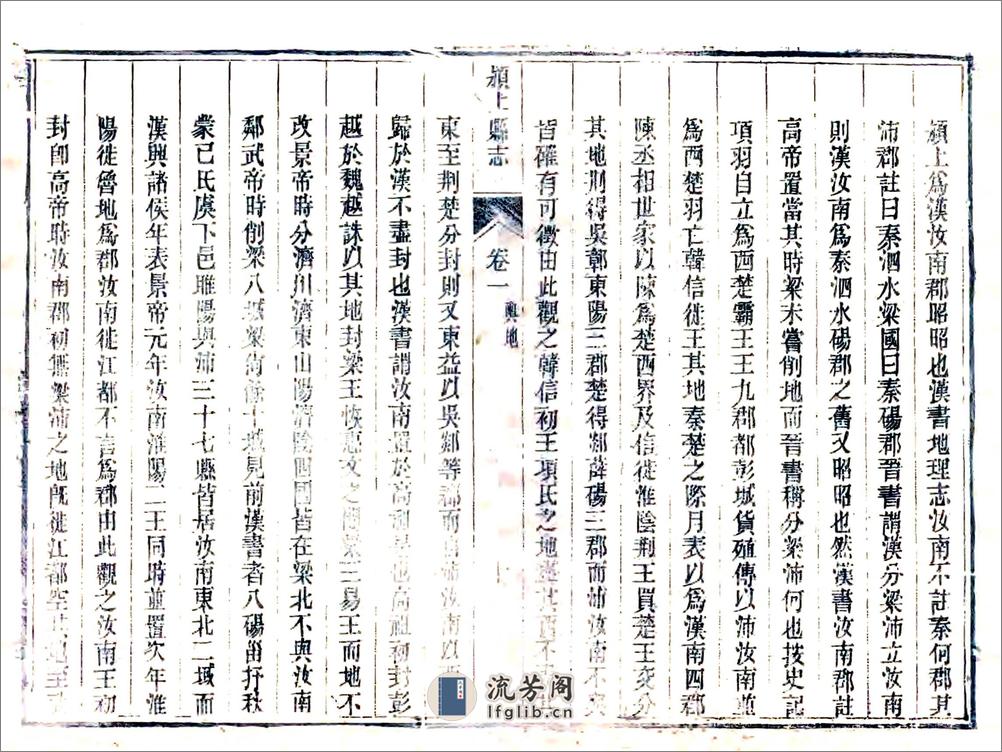 潁上爲漢汝南郡昭昭也漢書地理志汝南不註秦何郡其
沛郡註曰秦泗水梁國曰秦碭郡晉書謂漢分梁沛立汝南
則漢汝南爲秦泗水碭郡之舊又昭昭也然漢書汝南郡註
高帝置當其時梁未嘗削地而晉書稱分梁沛何也按史記
項羽自立爲西楚霸王王九郡都彭城貨殖傳以沛汝南並
爲西楚羽亡韓信徙王其地秦楚之際月表以爲漢南四郡
陳丞相世家以陳爲楚西界及信徙淮陰荆王賈楚王交分
其地荆得吳鄣東陽三郡楚得郯薛碭三郡而沛汝南不
皆確有可徵由此觀之韓信初王項氏之地
潁上縣志
卷一
輿地
東至荆楚分封則又東益以吳郯等郡而
歸於漢不盡封也漢書謂汝南置於高初封彭
越於魏越誅以其地封梁王恢三易王而地不
改景帝時分濟川濟東山陽濟陰四國皆在梁北不與汝南
鄰武帝時削梁八城梁尙餘十城見前漢書者八碭甾杼秋
蒙己氏虞下邑睢陽與沛三十七縣皆居汝南東北二域而
漢興諸侯年表景帝元年汝南淮陽二王同時並置次年淮
陽徙魯地爲郡汝南徙江都不言爲郡由此觀之汝南王初
封卽高帝時汝南郡初無梁沛之地旣徙江都空其地
流芳阁
lfglib.cn